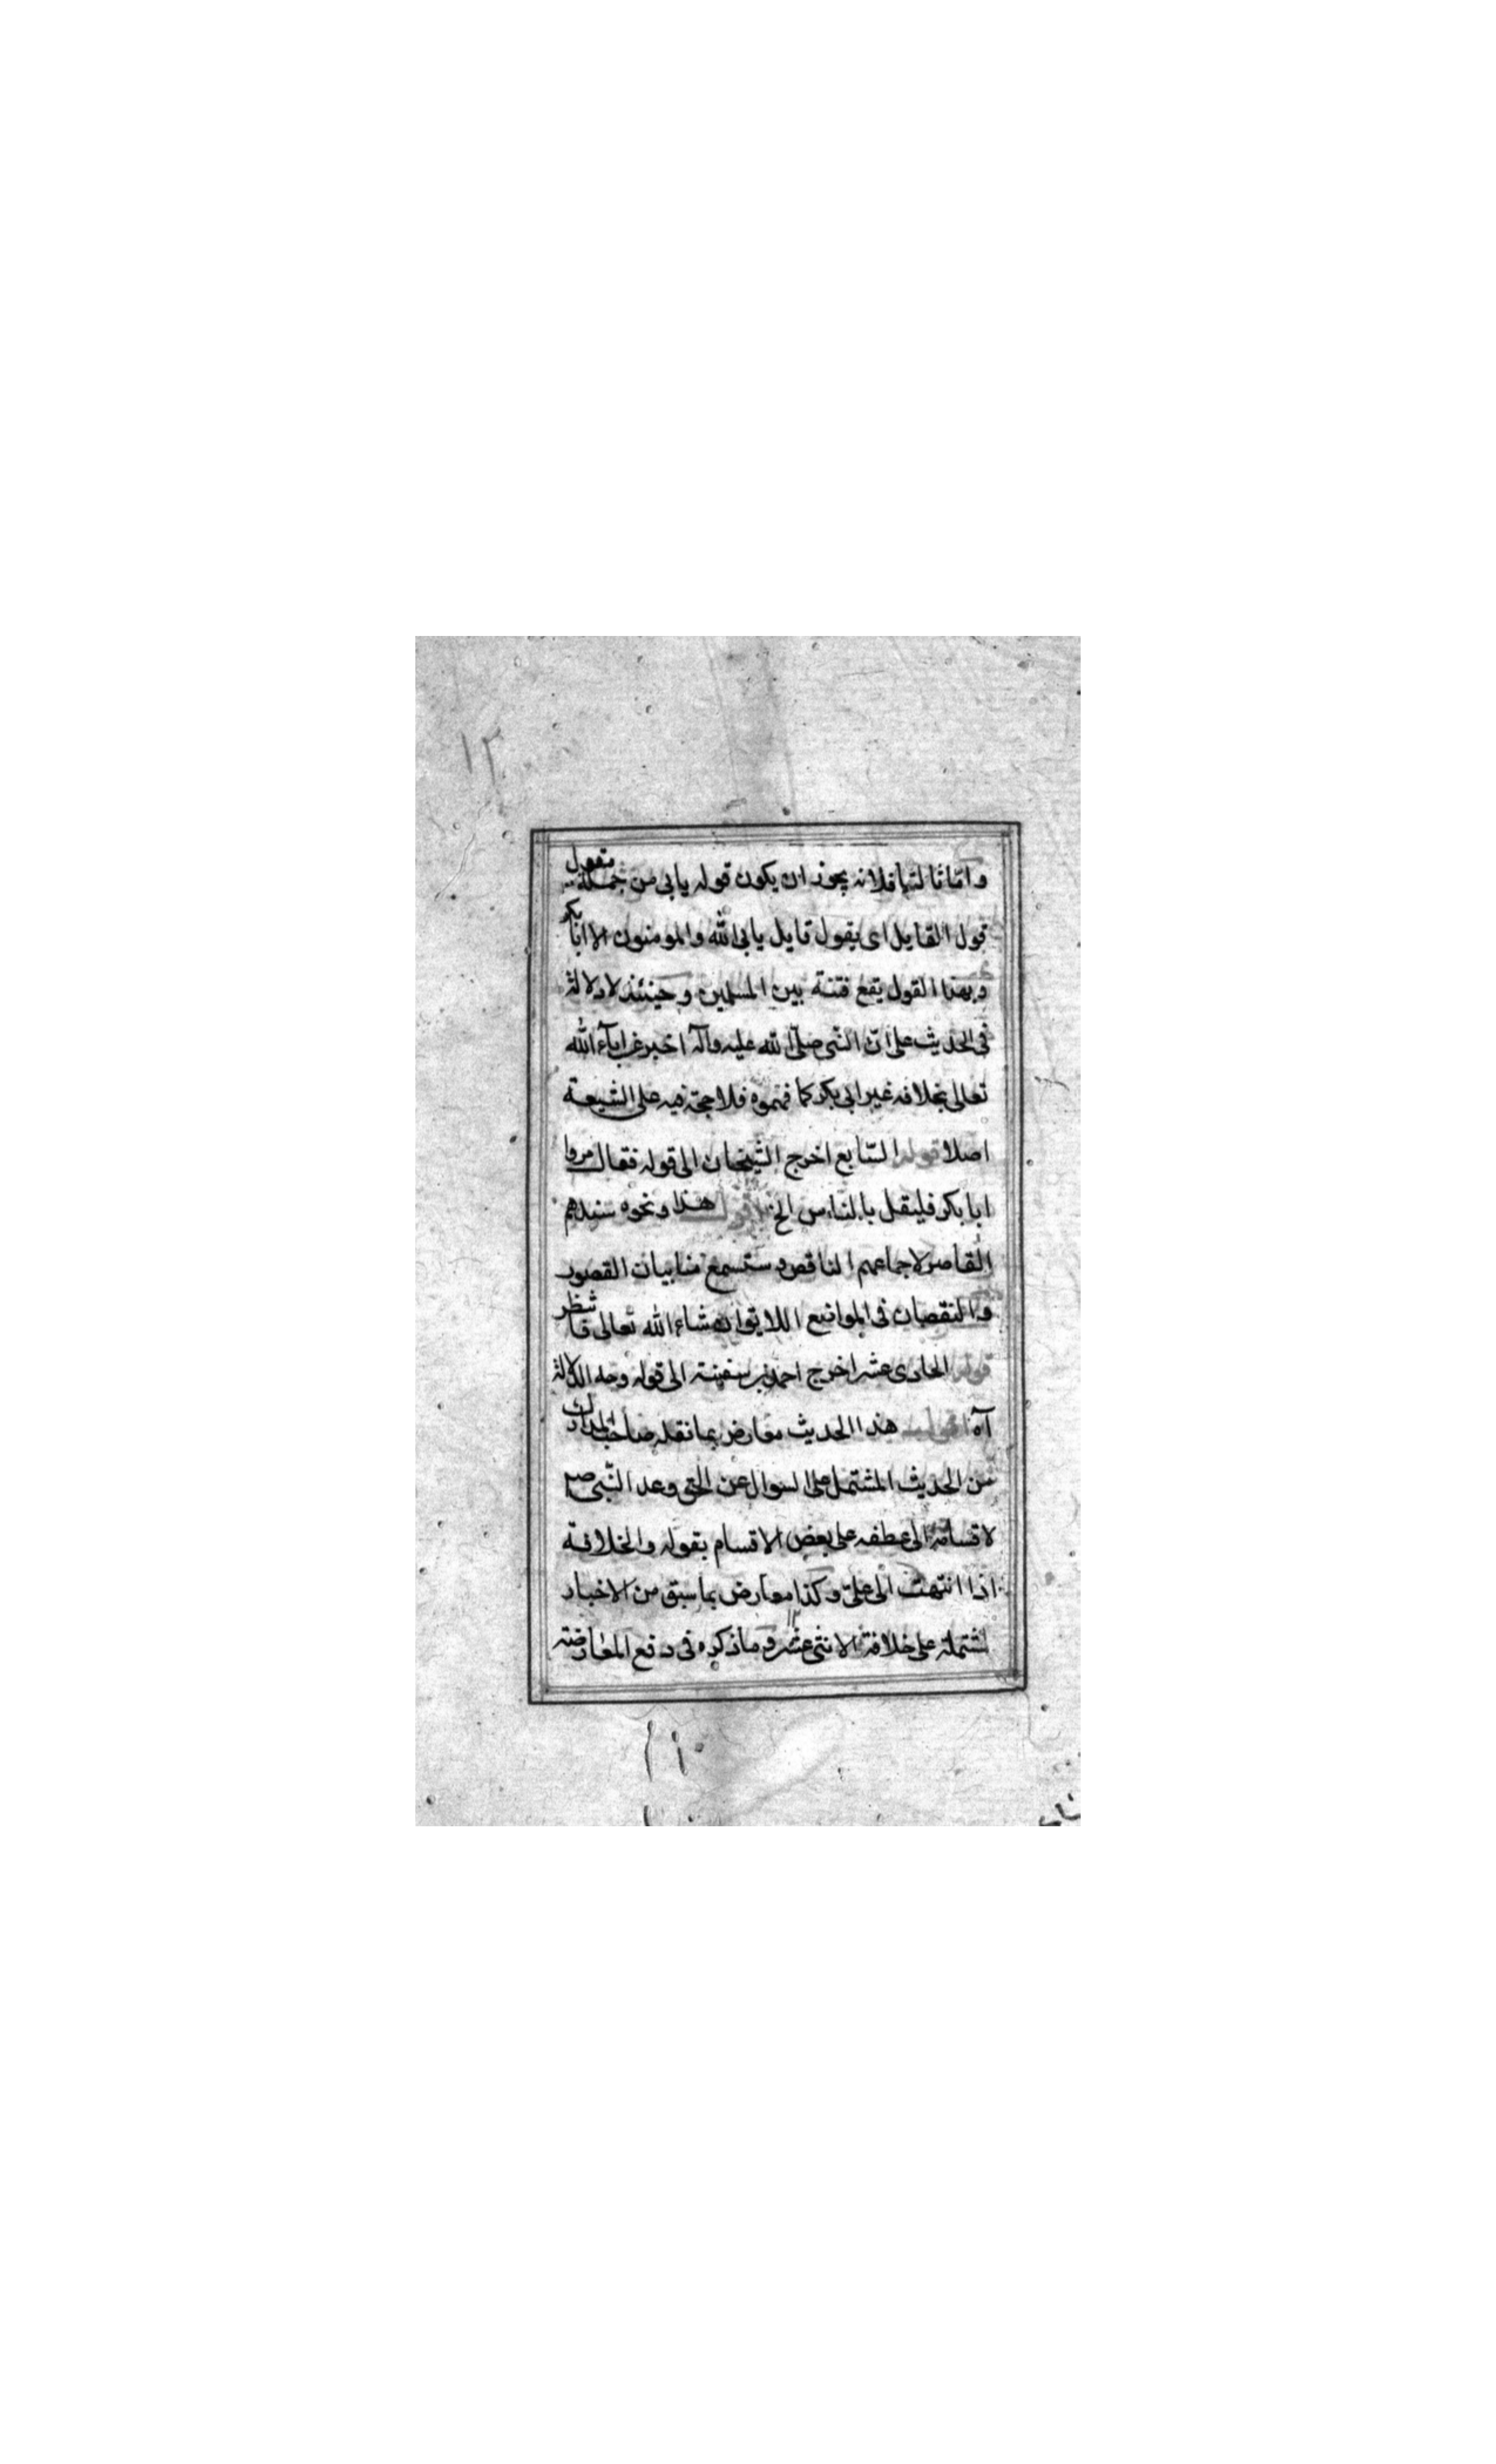 ١٢
واما ثالثها فلانه يجوز ان يكون قوله يابى من جملة مقول
قول القايل اى يقول قايل يابى الله والمومنون الا ابا بكر
وبهذا القول يقع فتنة بين المسلمين وحينئذ لا دلالة
فى الحديث على ان النبى صلى الله عليه وآله اخبر عن اباء الله
تعالى بخلافه غير ابى بكر كما فهموه فلا حجة فيه على الشيعة
اصلا قوله السابع اخرج الشيخان الى قوله فقال مروا
ابا بكر فليصل بالناس الخ اقول هذا ونحوه سندهم
القاصر لاجماعهم الناقص وستسمع منا بيان القصور
والنقصان فى المواضع اللايق انشاء الله تعالى فانتظر
قوله الحادى عشر اخرج احمد عن سفينة الى قوله وجه الدلالة
آه اقول هذا الحديث معارض بما نقله صاحب
من الحديث المشتمل على السوال عن الحق وعد النبى ص
لاقسامه الى عطفه على بعض الاقسام بقوله والخلافة
اذا انتهت الى على وكذا معارض بما سبق من الاخبار
المشتملة على خلافة الاثنى عشر وما ذكره فى دفع المعارضة